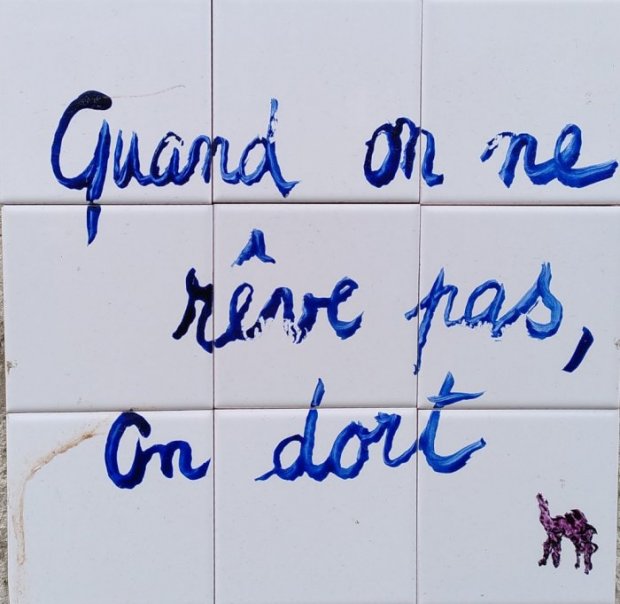 Quand on ne
rêve pas,
on dort